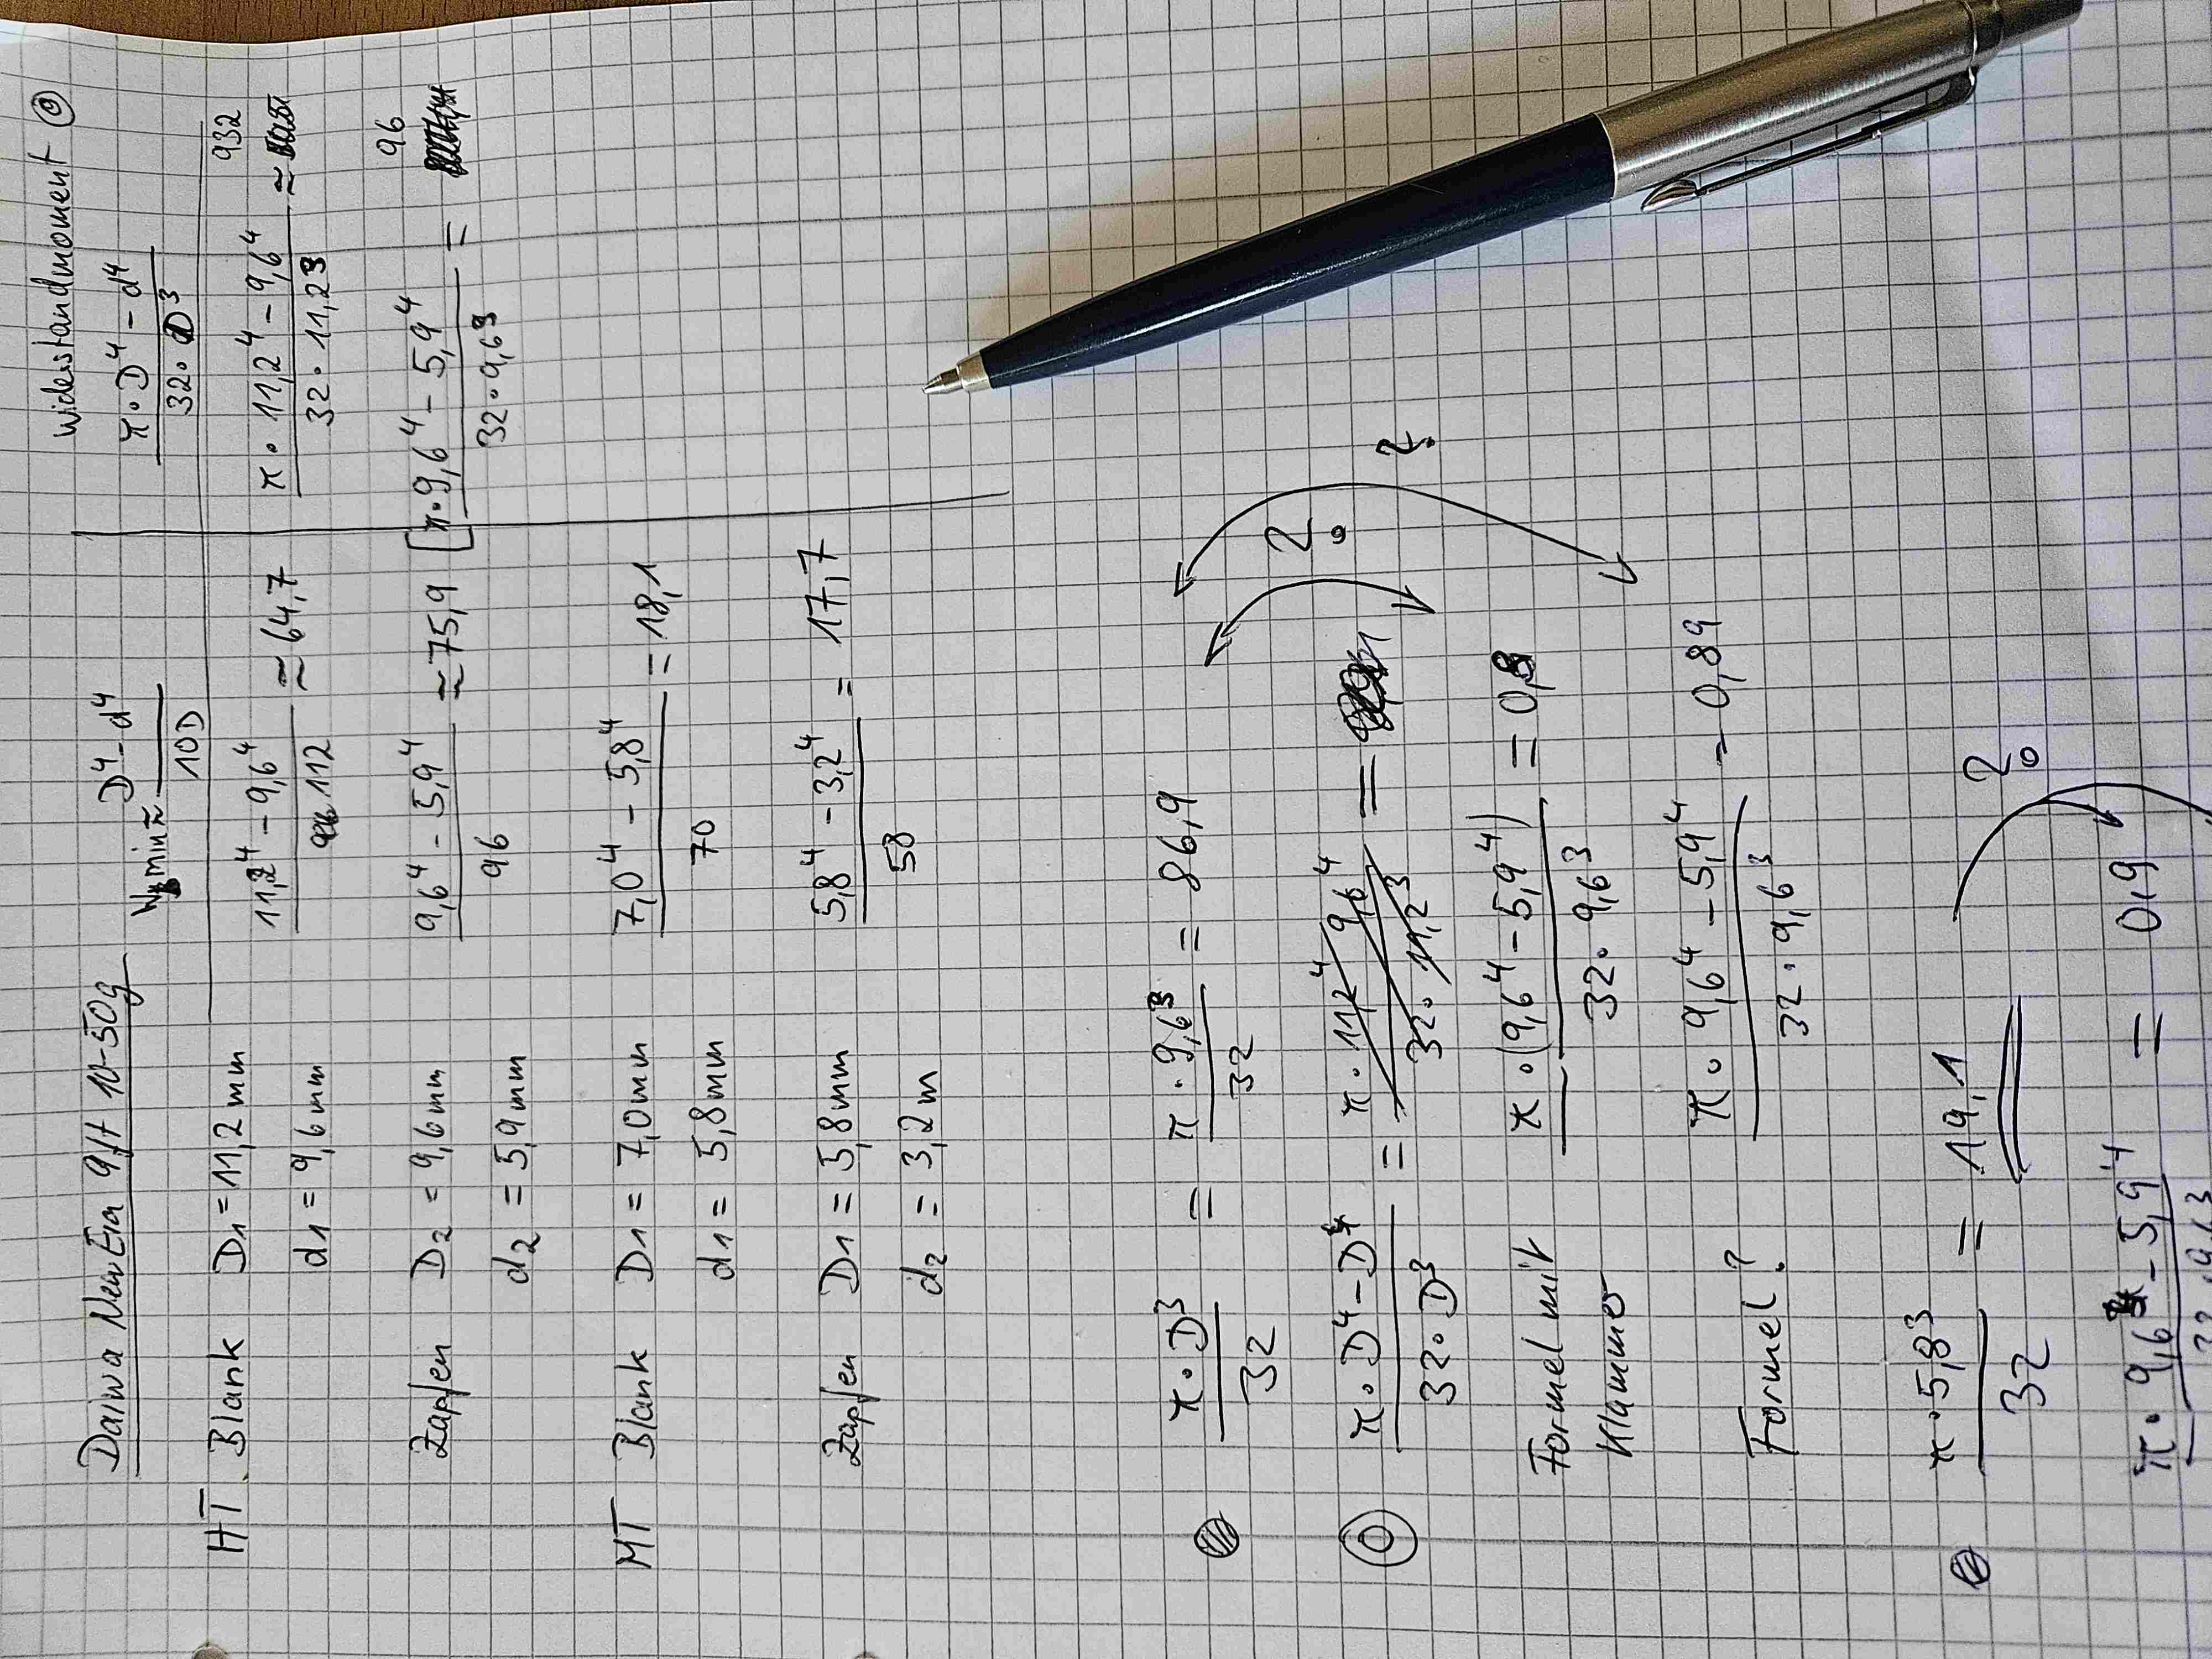 Daiwa New Era 9ft 10-50g
Wmin ≈ D⁴ - d⁴ / 10D
Widerstandmoment
π · D⁴ - d⁴ / 32 · D³
HT Blank D1 = 11,2 mm
d1 = 9,6 mm
11,2⁴ - 9,6⁴ / 112 ≈ 64,7
π · 11,2⁴ - 9,6⁴ / 32 · 11,2³ ≈ 932
Zapfen D2 = 9,6 mm
d2 = 5,9 mm
9,6⁴ - 5,9⁴ / 96 ≈ 75,9
[π · 9,6⁴ - 5,9⁴ / 32 · 9,6³ = 96
MT Blank D1 = 7,0 mm
d1 = 5,8 mm
7,0⁴ - 5,8⁴ / 70 = 18,1
Zapfen D1 = 5,8 mm
d2 = 3,2 m
5,8⁴ - 3,2⁴ / 58 = 17,7
π · D³ / 32 = π · 9,6³ / 32 = 86,9
?
?
π · D⁴ - D⁴ / 32 · D³ = π · 11,2⁴ 9,6⁴ / 32 · 11,2³ =
Formel mit
Klammer
π · (9,6⁴ - 5,9⁴) / 32 · 9,6³ = 0,8
Formel?
π · 9,6⁴ - 5,9⁴ / 32 · 9,6³ - 0,89
π · 5,8³ / 32 = 19,1
?
π · 9,6⁴ - 5,9⁴ / 32 · 9,6³ = 0,9